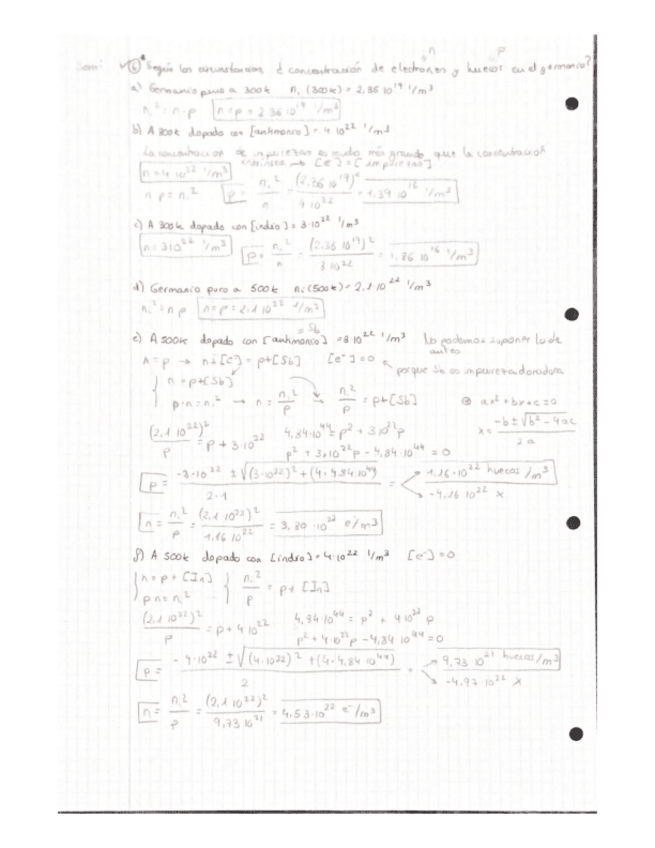 n p
⑥ Según las circunstancias ¿ concentración de electrones y huecos en el germanio?
a) Germanio puro a 300k nᵢ (300k) = 2,36·10¹⁹ 1/m³
nᵢ² = n·p n=p = 2,36·10¹⁹ 1/m³
b) A 300k dopado con [antimonio] = 4·10²² 1/m³
La concentración de impurezas es mucho más grande que la concentración
intrínseca → [e⁻] = [impurezas]
n = 4·10²² 1/m³
n·p = nᵢ² p = nᵢ²/n = (2,36·10¹⁹)²/4·10²² = 1,39·10¹⁶ 1/m³
c) A 300k dopado con [indio] = 3·10²² 1/m³
n = 3·10²² 1/m³ p = nᵢ²/n = (2,36·10¹⁹)²/3·10²² = 1,86·10¹⁶ 1/m³
d) Germanio puro a 500k nᵢ(500k) = 2,1·10²² 1/m³
nᵢ² = n·p n=p = 2,1·10²² 1/m³
= Sb
e) A 500k dopado con [antimonio] = 3·10²² 1/m³ No podemos suponer lo de
antes
n = p → n = [e⁻] = p+[Sb] [e⁻] = 0
porque Sb es impureza donadora
n = p+[Sb]
p·n = nᵢ² → n = nᵢ²/p → nᵢ²/p = p+[Sb] ax²+bx+c=0
x = -b±√b²-4ac/2a
(2,1·10²²)²/p = p+3·10²² 4,84·10⁴⁴ = p²+3·10²²p
p²+3·10²²p-4,84·10⁴⁴ = 0
p = -3·10²² ± √(3·10²²)²+(4·4,84·10⁴⁴)/2·1 = 1,16·10²² huecos/m³
-4,16·10²² x
n = nᵢ²/p = (2,1·10²²)²/1,16·10²² = 3,80·10²² e⁻/m³
f) A 500k dopado con [indio] = 4·10²² 1/m³ [e⁻] = 0
n = p+[In] nᵢ²/p = p+[In]
p·n = nᵢ²
(2,1·10²²)²/p = p+4·10²² 4,84·10⁴⁴ = p²+4·10²²p
p²+4·10²²p-4,84·10⁴⁴ = 0
p = -4·10²² ± √(4·10²²)²+(4·4,84·10⁴⁴)/2 = 9,73·10²¹ huecos/m³
-4,97·10²² x
n = nᵢ²/p = (2,1·10²²)²/9,73·10²¹ = 4,53·10²² e⁻/m³